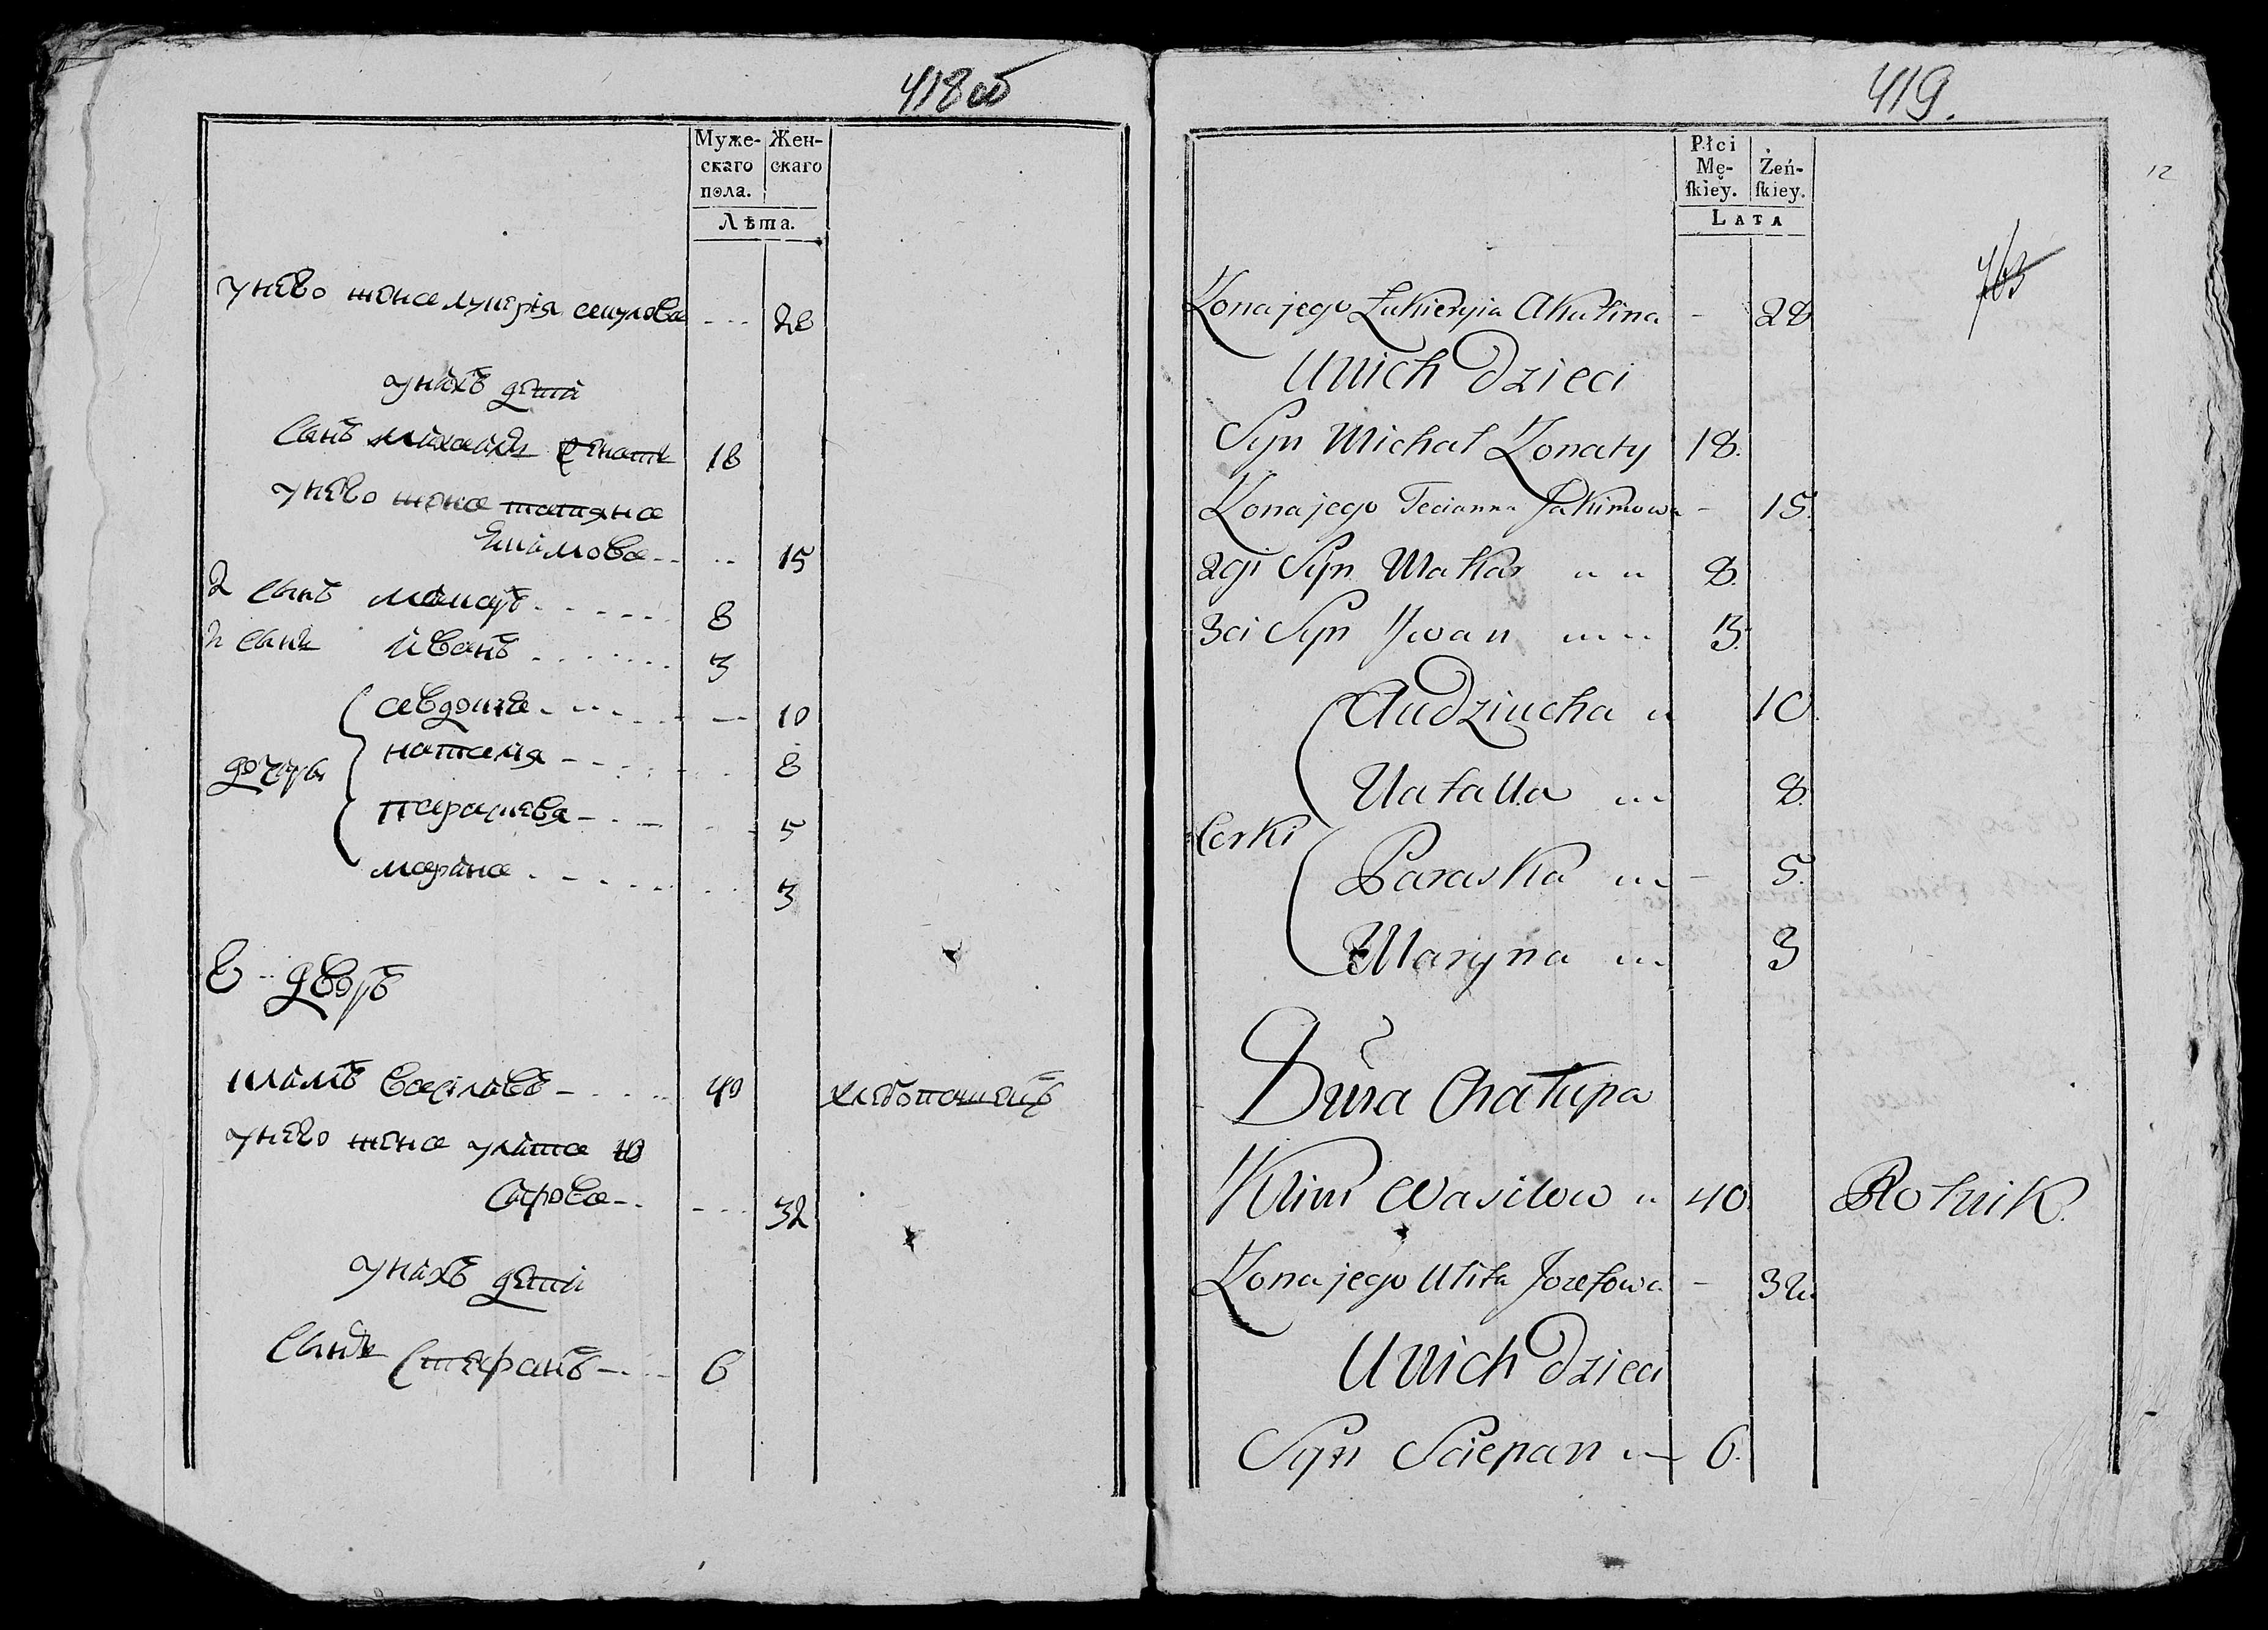 418 об
Муже-
скаго
пола.
Жен-
скаго
Лѣта.
у нево жена лукерія 28
у нихъ дети
Сынъ михайла женатъ 18
у нево жена татияна
Екимова 15
2 Сынъ макаръ 8
Сынъ иванъ 3
авдотя 10
наталия 8
дочери
парасковя 5
марина 3
8 дворъ
климъ василевъ 40 хлебопашецъ
у нево жена улита ю
сифова 32
у нихъ дети
Сынъ Стефанъ 6
419.
12
Płci
Mę-
ſkiey.
Żeń-
ſkiey.
LATA
463
Zona jego Łukieryia Akulina - 28
U nich Dzieci
Syn Michał Zonaty 18.
Zona jego Tecianna Jakimowa - 15.
2gi Syn Makar 8.
3ci Syn Jwan 3.
Audziucha 10.
Natalla 8.
Corki
Paraska - 5.
Maryna 3
8ma Chałupa
Klim Wasilow 40. Rolnik.
Zona jego Ulita Jozefowa - 32
U nich Dzieci
Syn Sciepan 6.